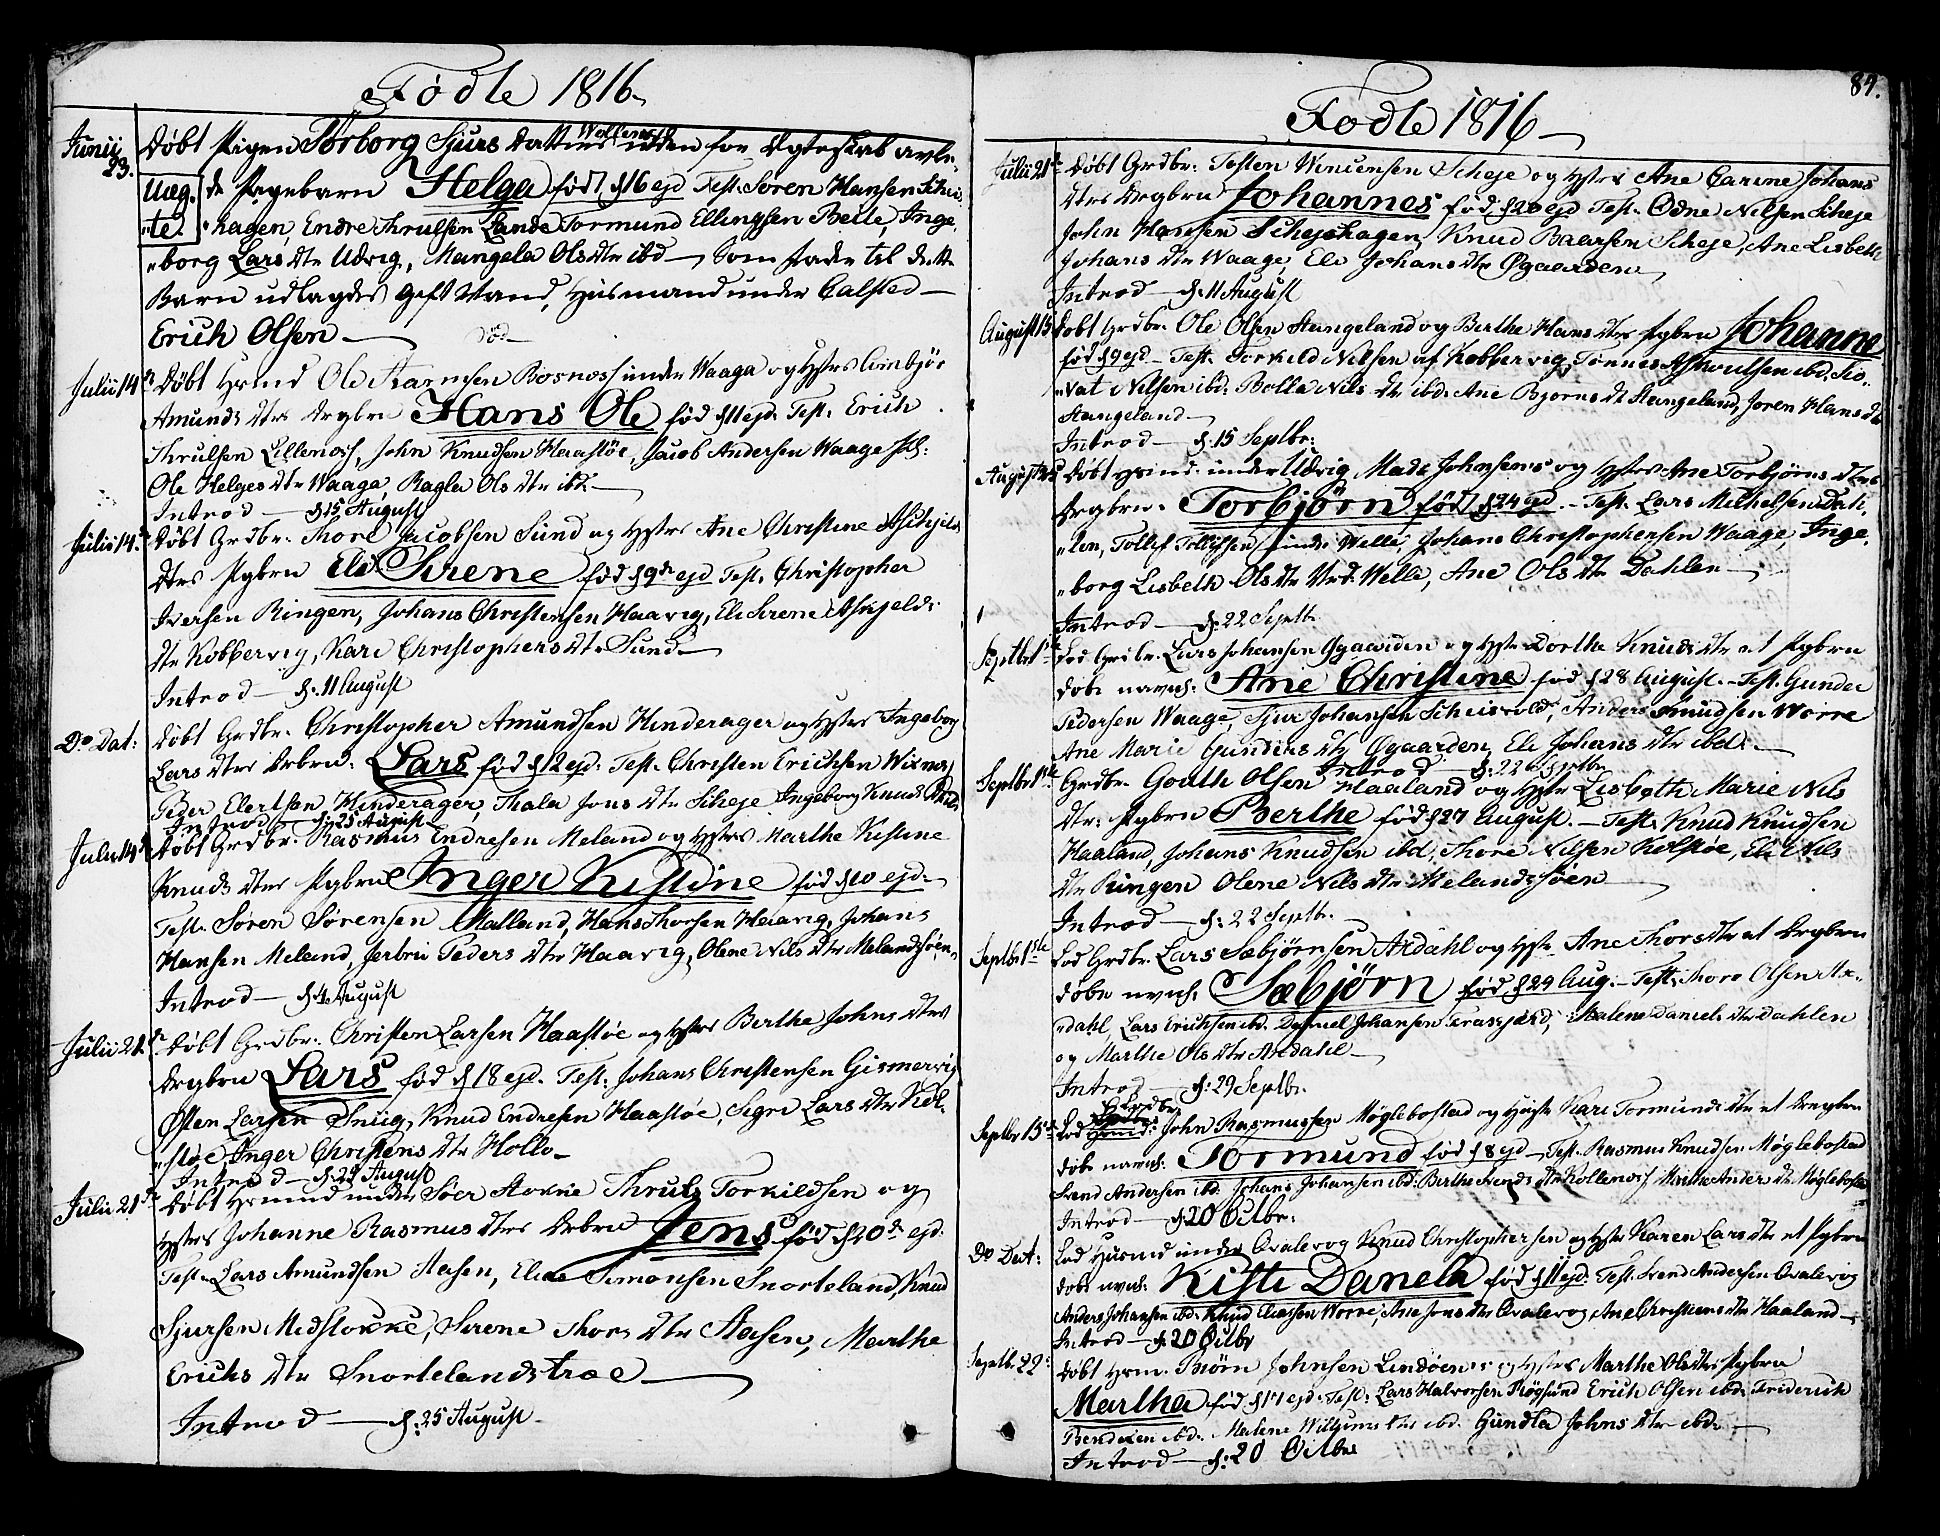 Fødte 1816
Junii 23. Døbt Pigen Torborg Sjurs Datters uden for Ægteskab avle-
Uæg- de Pigebarn Helga fød d 16 ejd Test. Søren Hansen
"te. "hagen, Endre Thrulsen Lande Tormund Ellingsen Velle, Inge-
"borg Lars dtr Udvig, Mangela Ols dtr ibd – Som fader til dette
Barn udlagdes Gift Mand, Huusmand under Calsted –
Erich Olsen – død
Julii 14d Døbt Hsmd Ole Bosness under Waaga og Hstrs
Amunds dtrs Drgbn Hans Ole fød d 11 ejd. Test. Erich
Thrulsen Lillenoss, John Knudsen Haastøe, Jacob Andersen Waage
Ole Helges dtr Waaga, Ragla Ols dtr ibd –
Introd – d. 15 August
Julii 14d Døbt Grdbr. Thore Jacobsen Sund og Hstrs Ane Christine
dtrs Pgbrn Eli Serene fød d 9de ejd Test. Christopher
Iversen Ringen, Johans Christensen Haavig, Eli Serene
dtr Kobbervig, Kari Christophers dtr Sund –
Introd – d. 11 August
Do Dat: Døbt Grdbr. Christopher Amundsen Hinderager og Hstrs Ingeborg
Lars dtrs Drbrn. Lars fød d 12 ejd. Test. Christen Erichsen
Peder Elertsen Hinderager, Thala Jons dtr Scheje Ingeborg Knuds
Introd – d. 25 August
Julii 14d Døbt Grdbr. Rasmus Endresen Meland og Hstrs Marthe Kistine
Knuds dtrs Pgbrn Inger Kistine fød d 10 ejd.
Test. Søren Sørensen Malland, Hans Thorsen Haavig, Johans
Hansen Meland, Jerbru Peders dtr Haavig, Olene Nils dtr Melandsøen
Introd – d 4 August
Julii 21d Døbt Grdbr. Christen Larsen Haastøe og Hstrs Berthe Johns dtrs
Drgbrn Lars fød d 18 ejd. Test. Johans Christensen Gismervig
Østen Larsen Sniig, Knud Endresen Haastøe, Segri Lars dtr Kol-
"støe, Inger Christens dtr Hollo –
Introd – d. 29 August
Julii 21d Døbt Hsmnd under Søer Stokke Thruls Torkildsen og
Hstrs Johanne Rasmus dtrs Drbrn Jens fød d 20de ejd.
Test. Lars Amundsen Aasen, Simonsen Snorteland, Knud
Sjursen Midstokke, Serene Thors dtr Aasen, Marthe
Erichs dtr Snortelandstræe –
Introd – d. 25 August –
89.
Fødte 1816
Julii 21d Døbt Grdbr. Tosten Scheje og Hstrs Ane Carine Johans
dtrs Drgbrn Johannes fød d 20 ejd Test. Odne Nilsen Scheje
John Hansen Schejehagen, Knud Baarsen Scheje, Ane Lisbeth
Johans dtr Waage, Eli Johans dtr Øgaarden
Introd – d. 11 August
August 15 Døbt Grdbr. Ole Olsen Stangeland og Berthe Hans dtrs Pgbrn Johanne
fød d 9 ejd – Test. Torkild Nilsen af Kobbervig, Tønnes ibd.
"vat Nilsen ibd. Bolla Nils dtr ibd. Ane Bjorns dtr Stangeland, Joren Hans dtr
Stangeland –
Introd – d. 15 Septbr.
August Døbt Hsmd. under Udvig, Mads Johnsens og Hstrs Ane Torbjørns dtrs
Drgbrn. Torbjørn fød d 24 ejd. – Test. Lars Michelsen Dah-
"len, Tollef Tollefsen under Welle, Johans Christophersen Waage, Inge-
"borg Lisbeth Ols dtr Welle, Ane Ols dtr Dahlen –
Introd – d. 22 Septbr
Septbr 1ste Lod Grdbr. Lars Johansen Øgaarden og Hstr Dorthe Knuds dtr et Pgbrn
døbe navnl. Ane Christine fød d 28 August. – Test. Gunder
Pedersen Waage, Sjur Johansen, Anders Knudsen Worre
Ane Marie Gunders dtr Øgaarden, Eli Johans dtr ibd. –
Introd – d. 22 Septbr
Septbr 1ste Grdbr. Gouth Olsen Haaland og Hstr Lisbeth Marie Nils
dtr. Pgbrn Berthe fød d 27 August. – Test. Knud Knudsen
Haaland, Johans Knudsen ibd, Thore Nilsen Kolstøe, Eli Nils
dtr Ringen Olene Nils dtr Melandssøen –
Introd – d. 22 Septbr.
Septbr 1ste Lod Grdbr. Lars Sæbjørnsen Ardahl og Hstr. Ane Thors dtr et Drgbrn
døbe nvnl. Sæbjørn fød d 29 Aug. – Test. Thore Olsen Ar-
"dahl, Lars Erichsen ibd. Daniel Johansen, Malene Daniels dtr Dahlen
og Marthe Ols dtr Ardahl –
Introd – d. 29 Septbr.
Grdbr
Septbr 15d Lod John Rasmussen Møglebostad og Hust. Kari Tormunds dtr et Drgbrn
døbe navnl. Tormund fød d 8 ejd – Test. Rasmus Knudsen Møglebostad
Svend Andersen ibd. Johans Johansen ibd. Berthe Svends dtr Marthe Anders dtr Møglebostad
Introd – d 20 Octbr.
Do Dat: Lod Husmd under Qvalevog Knud Christophersen og Hstr Karen Lars dtr et Pgbrn
døbe nvnl. Kisti Danela fød d 11 ejd. Test. Svend Andersen Qvalevog
Anders Johansen ibd. Knud Eliassen Worre, Ane Jons dtr Qvalevog, Ane Christens dtr Haaland –
Introd – d 20 Octbr
Septbr. 29. Døbt Hsm. Biørn Johnsen Lindøens og Hstrs Marthe Ols dtrs Pgbrn
Martha fød d 17 ejd. Test. Lars Halvorsen Røgsund Erich Olsen ibd. Friderich
Bendixen ibd. Malene Willums dtr ibd. Gundla Johns dtr ibd. –
Introd – d. 20 Octbr